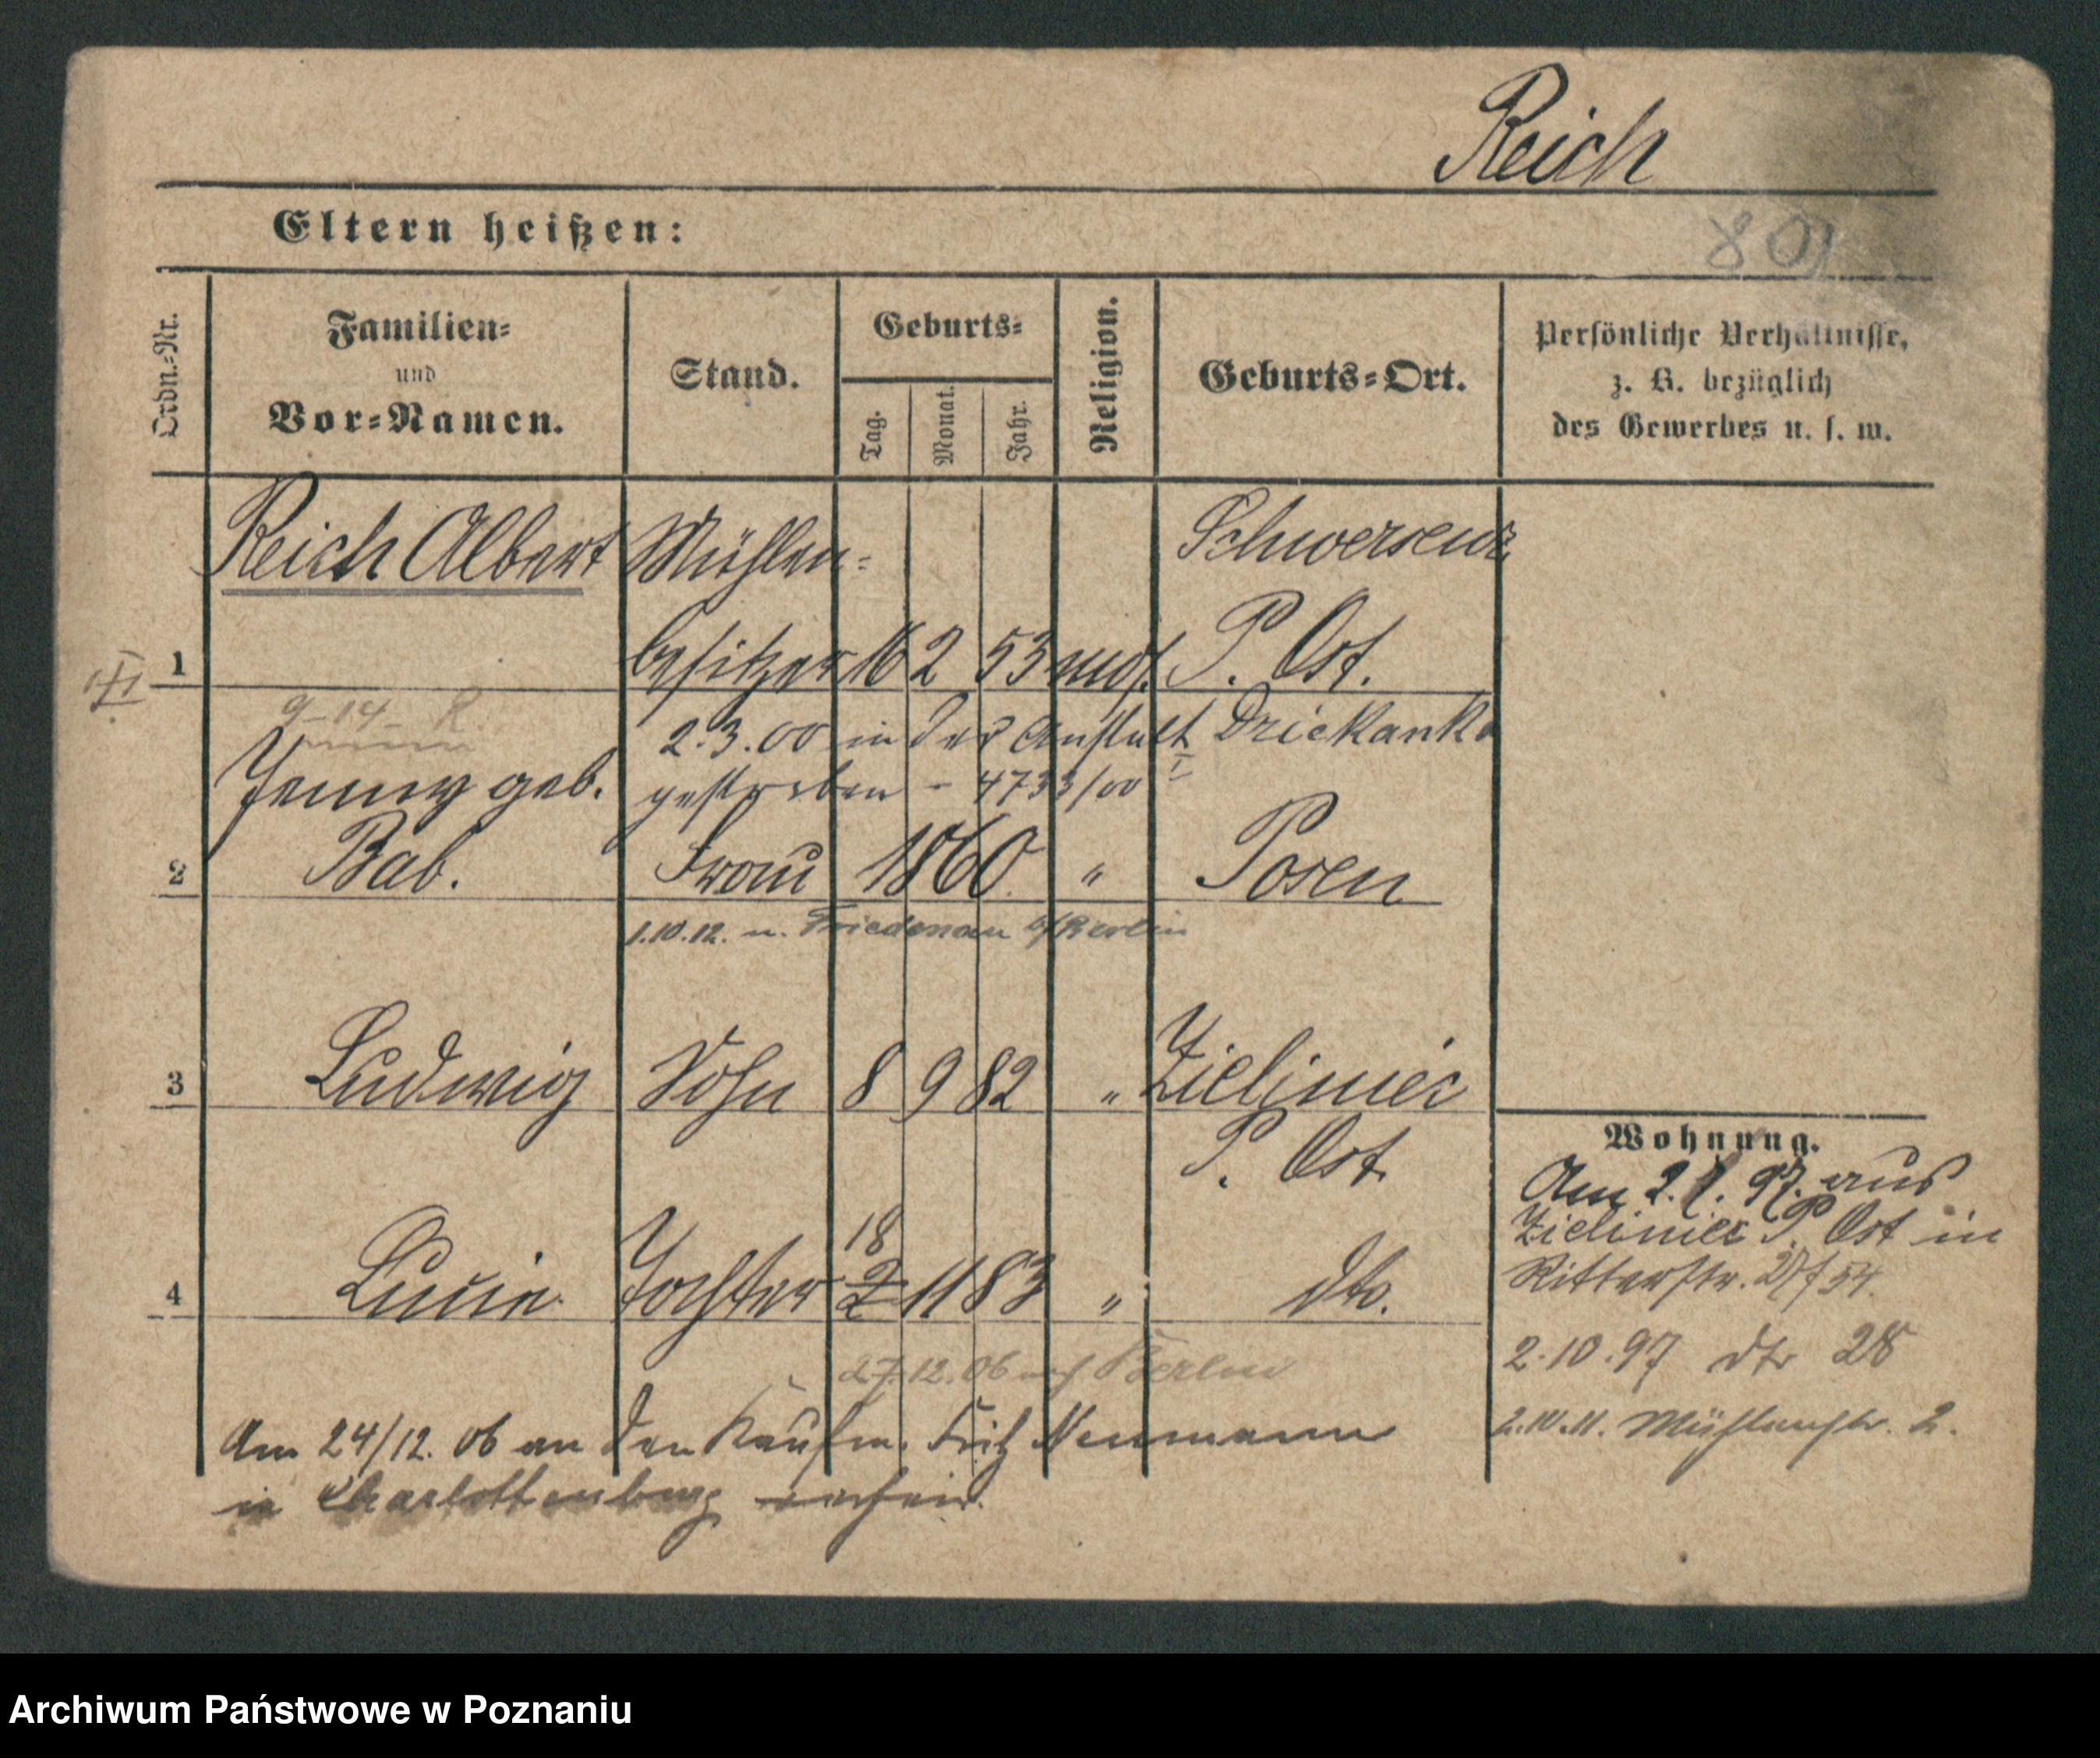 Reich
Eltern heißen:
801
Ordn.=Nr.
Familien=
und
Vor=Namen.
Stand.
Geburts=
Tag.
Monat.
Jahr.
Religion.
Geburts=Ort.
Persönliche Verhältnisse,
z. B. bezüglich
des Gewerbes u. s. w.
Reich Albert Mühlen= Schwersenz
1 besitzer 16 2 53 mos. P. Ost.
9-14- R.
2.3.00 in der Anstalt Dziekanka
gestorben - 4733/00 I
Jenny geb.
2 Bab. Frau 1860. " Posen
1.10.12. n. Friedenau b/Berlin
3 Ludwig Sohn 8 9 82 " Zieliniec
P. Ost.
18
4 Lucie Tochter 2 11 83 " dto.
27.12.06 auf Berlin
Am 24/12. 06 an den Kaufm. Fritz Neumann
in Charlottenburg verheir.
Wohnung.
Am 2. 1. 97. aus
Zieliniec P. Ost in
Ritterstr. 54.
2.10.97 dto 28
2.10.11. Mühlenstr. 2.
Archiwum Państwowe w Poznaniu